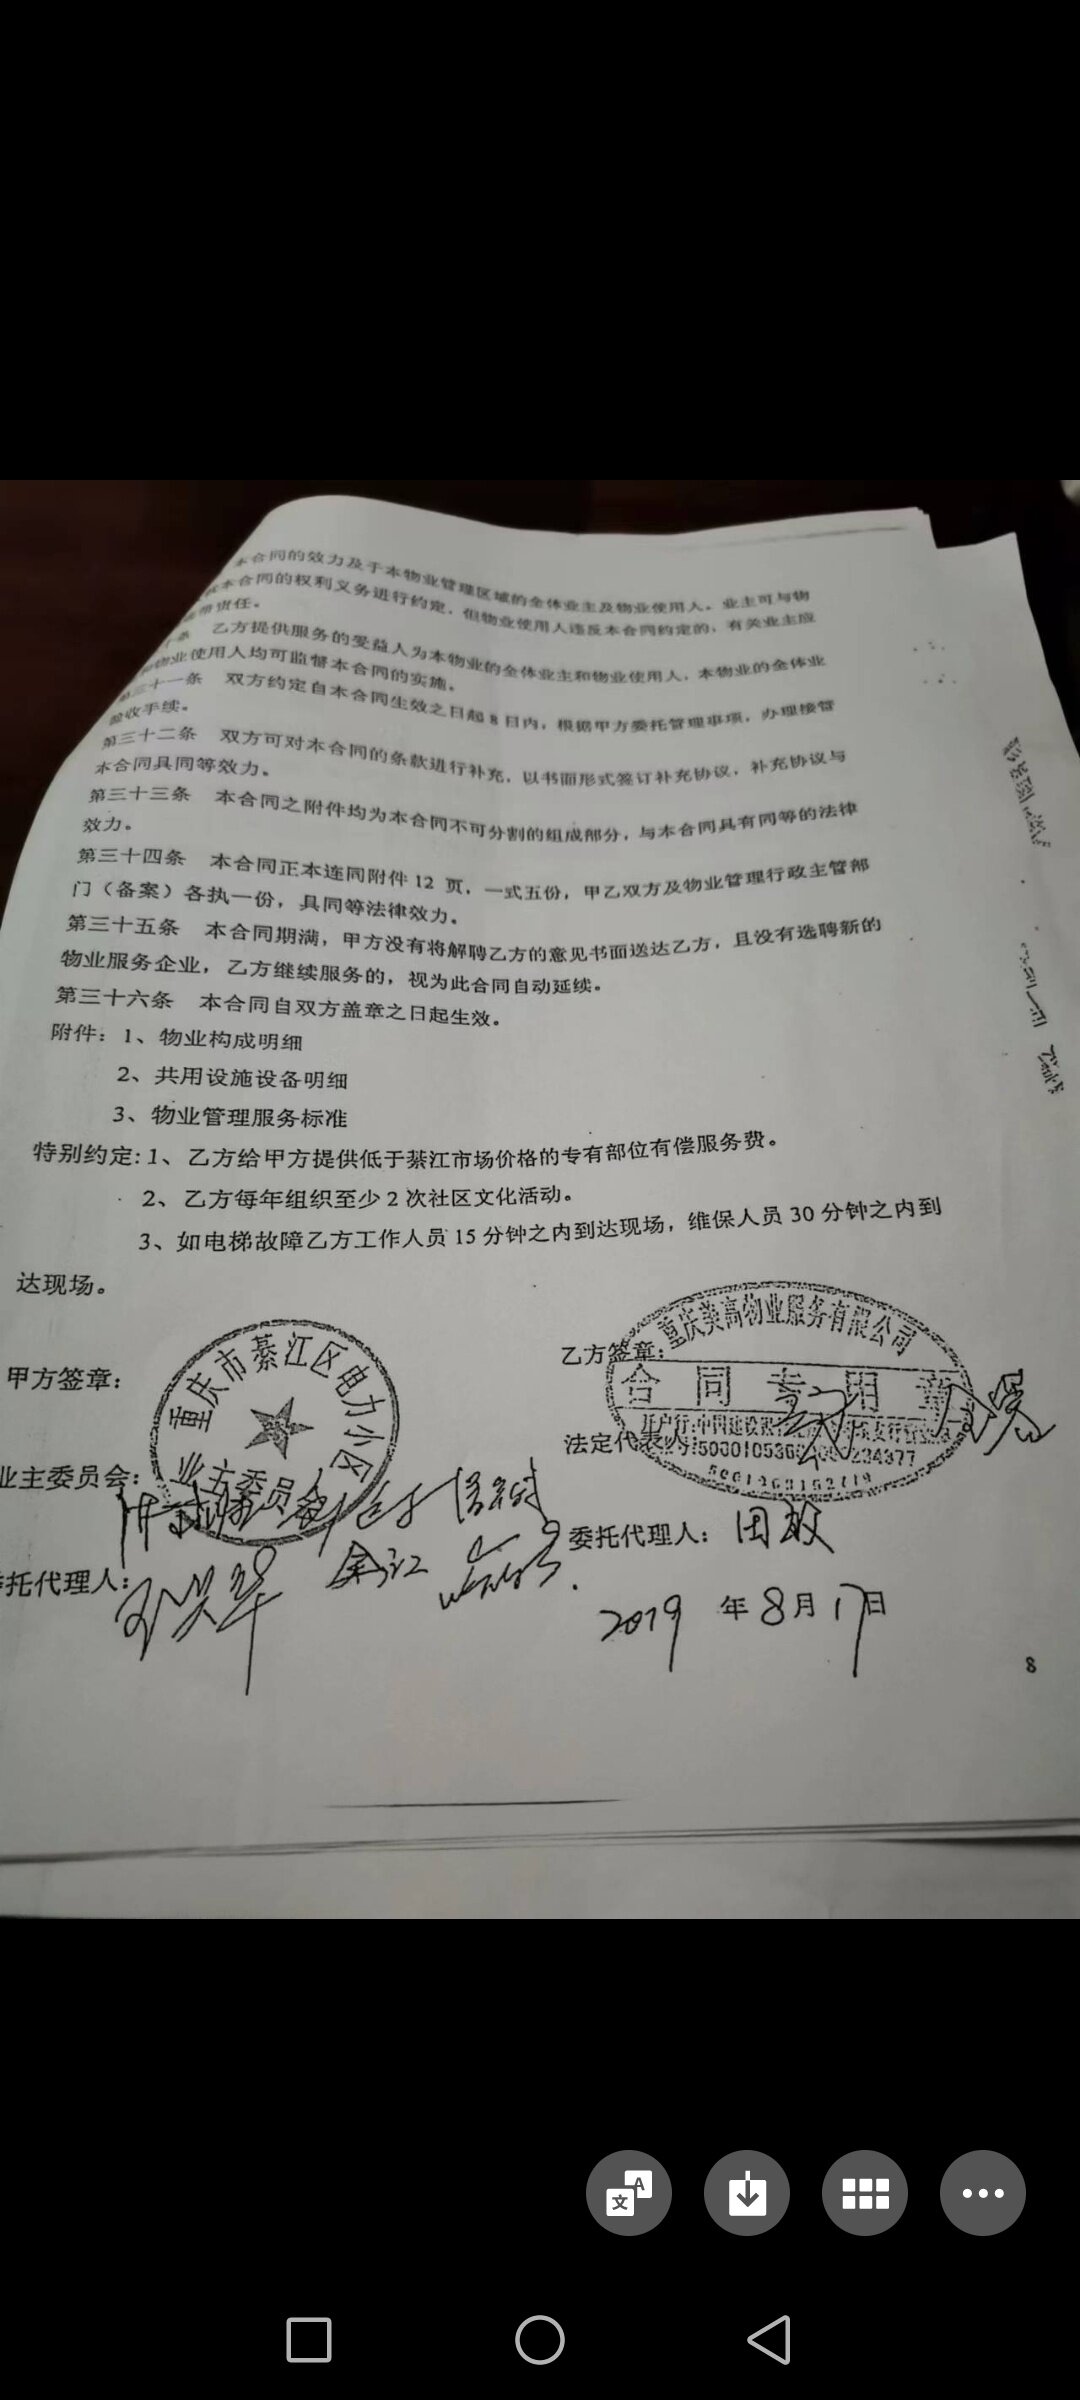 本合同的效力及于本物业管理区域的全体业主及物业使用人。业主可与物
本合同的权利义务进行约定，但物业使用人违反本合同约定的，有关业主应
责任。
乙方提供服务的受益人为本物业的全体业主和物业使用人，本物业的全体业
物业使用人均可监督本合同的实施。
第三十一条 双方约定自本合同生效之日起8日内，根据甲方委托管理事项，办理接管
验收手续。
第三十二条 双方可对本合同的条款进行补充，以书面形式签订补充协议，补充协议与
本合同具同等效力。
第三十三条 本合同之附件均为本合同不可分割的组成部分，与本合同具有同等的法律
效力。
第三十四条 本合同正本连同附件12 页，一式五份，甲乙双方及物业管理行政主管部
门（备案）各执一份，具同等法律效力。
第三十五条 本合同期满，甲方没有将解聘乙方的意见书面送达乙方，且没有选聘新的
物业服务企业，乙方继续服务的，视为此合同自动延续。
第三十六条 本合同自双方盖章之日起生效。
附件：1、物业构成明细
2、共用设施设备明细
3、物业管理服务标准
特别约定：1、乙方给甲方提供低于綦江市场价格的专有部位有偿服务费。
2、乙方每年组织至少2次社区文化活动。
3、如电梯故障乙方工作人员15分钟之内到达现场，维保人员30分钟之内到
达现场。
甲方签章：
重庆市綦江区电力小区
业主委员会
乙方签章：
重庆美高物业服务有限公司
合同专用章
法定代表人：
业主委员会：
委托代理人：田敏
托代理人：
2019 年 8 月 17 日
8